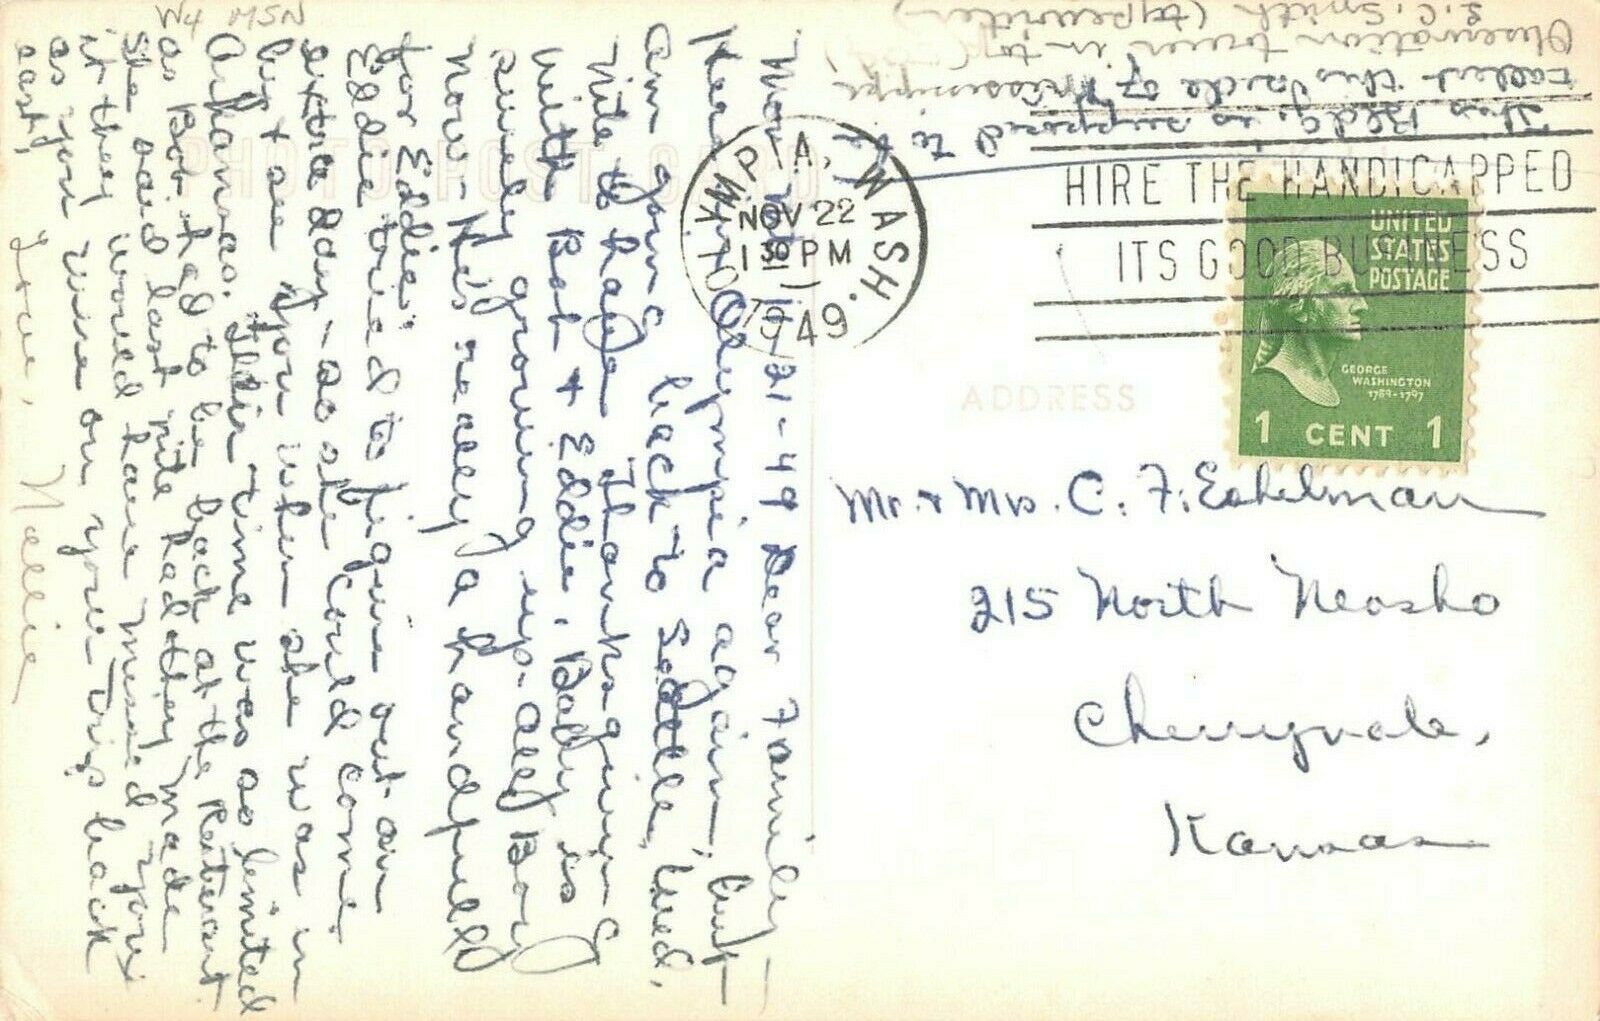 W4 MSN
This Bldg. is supposed to be
tallest this side of Mississippi
Observation tower in top
L.C. Smith (typewriter)
PHOTO POST CARD
OLYMPIA, WASH.
NOV 22
1 30 PM
1949
HIRE THE HANDICAPPED
ITS GOOD BUSINESS
UNITED
STATES
POSTAGE
GEORGE
WASHINGTON
1789-1797
1 CENT 1
ADDRESS
Mon. 11-21-49 Dear Family -
Here in Olympia again, but
am going back to Seattle, Wed.
Nite to have Thanksgiving
with Bob & Eddie. Baby is
surely growing up - all Boy
now - He's really a handfull
for Eddie.
Eddie tried to figure out an
extra day - so she could come
by & see you when she was in
Arkansas. Their time was so limited
as Bob had to be back at the
She said last nite had they made
it they would have missed you
as you were on your trip back
east.
Love, Nellie
Mr. & Mrs. C. F. Eshelman
215 North Neosho
Cherryvale,
Kansas